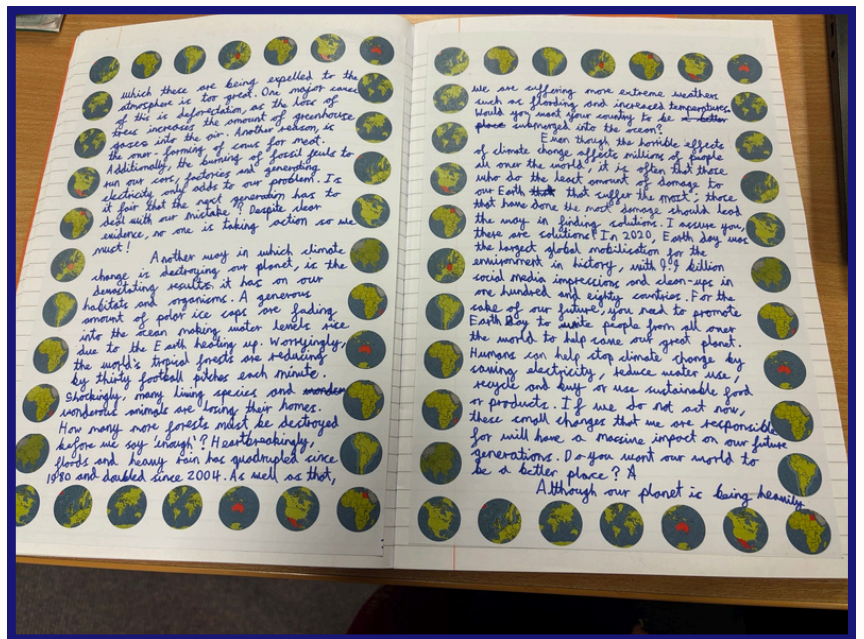 which these are being expelled to the
atmosphere is too great. One major cause
of this is deforestation, as the loss of
trees increases the amount of greenhouse
gases into the air. Another reason, is
the over-farming of cows for meat.
Additionally, the burning of fossil fuels to
run our cars, factories and generating
electricity only adds to our problem. Is
it fair that the next generation has to
deal with our mistake? Despite clear
evidence, no one is taking action so we
must!
Another way in which climate
change is destroying our planet, is the
devastating results it has on our
habitats and organisms. A generous
amount of polar ice caps are fading
into the ocean making water levels rise
due to the Earth heating up. Worryingly,
the world's tropical forests are reducing
by thirty football pitches each minute.
Shockingly, many living species and wonder
wonderous animals are losing their homes.
How many more forests must be destroyed
before we say 'enough'? Heartbreakingly,
floods and heavy rain has quadrupled since
1980 and doubled since 2004. As well as that,
We are suffering more extreme weathers
such as flooding and increased temperatures.
Would you want your country to be a better
place submerged into the ocean?
Even though the horrible effects
of climate change affects millions of people
all over the world, it is often that those
who do the least amount of damage to
our Earth that that suffer the most; those
that have done the most damage should lead
the way in finding solutions. I assure you,
there are solutions! In 2020, Earth day was
the largest global mobilisation for the
environment in history, with 9.9 billion
social media impressions and clean-ups in
one hundred and eighty countries. For the
sake of our future, you need to promote
Earth Day to unite people from all over
the world to help save our great planet.
Humans can help stop climate change by
saving electricity, reduce water use,
recycle and buy or use sustainable food
or products. If we do not act now,
these small changes that we are responsible
for will have a massive impact on our future
generations. Do you want our world to
be a better place? A
Although our planet is being heavily